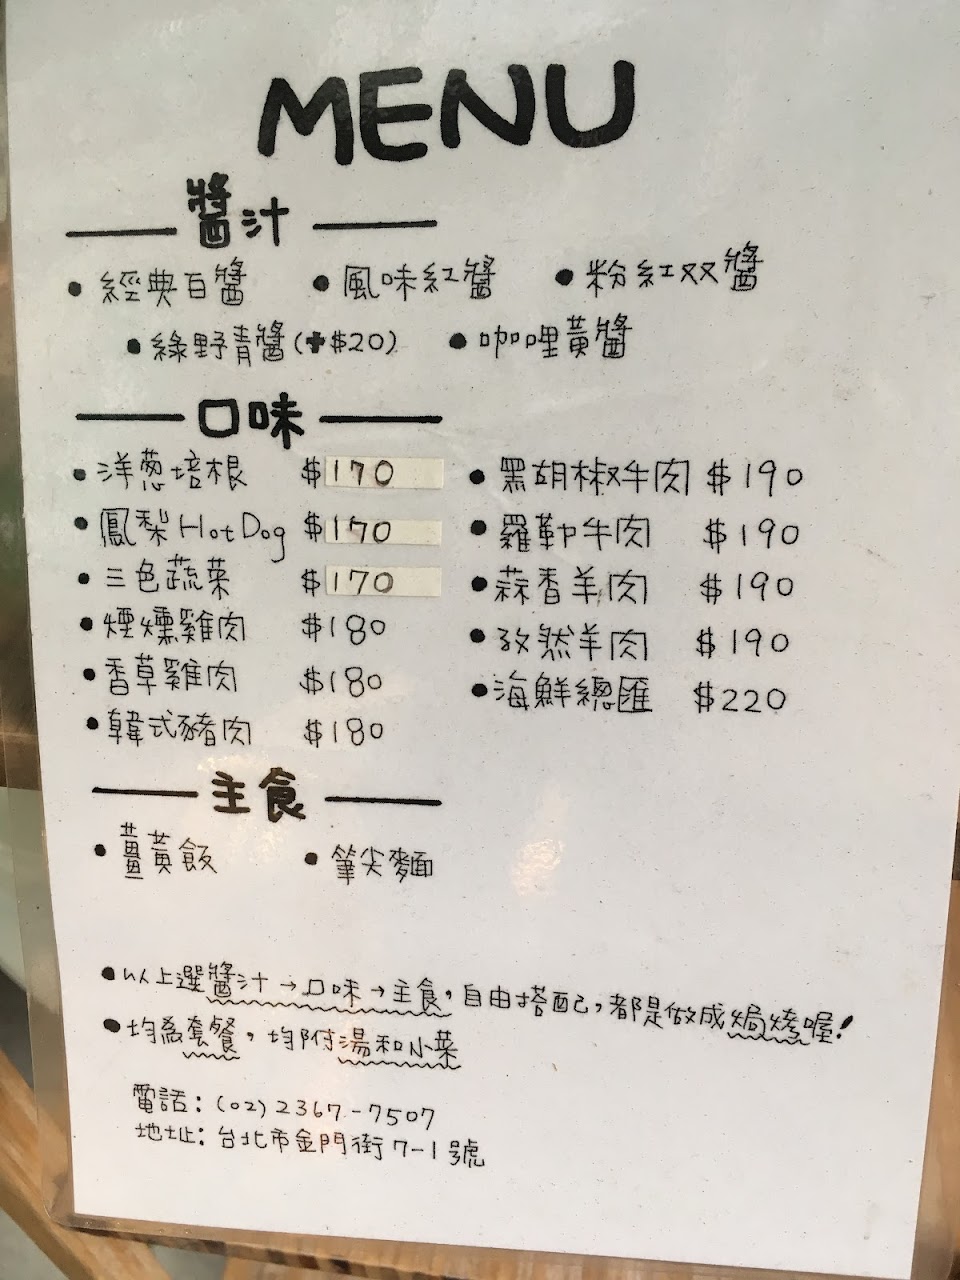 MENU
醬汁
• 經典白醬 • 風味紅醬 • 粉紅双醬
• 綠野青醬(+$20) • 咖哩黃醬
口味
• 洋葱培根 $170 • 黑胡椒牛肉 $190
• 鳳梨HotDog $170 • 羅勒牛肉 $190
• 三色蔬菜 $170 • 蒜香羊肉 $190
• 煙燻雞肉 $180 • 孜然羊肉 $190
• 香草雞肉 $180 • 海鮮總匯 $220
• 韓式豬肉 $180
主食
• 薑黃飯 • 筆尖麵
• 以上選醬汁→口味→主食,自由搭配,都是做成焗烤喔!
• 均為套餐,均附湯和小菜
電話:(02)2367-7507
地址:台北市金門街7-1號